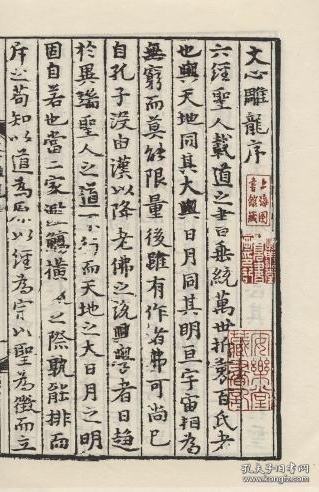 文心雕龍序
六經聖人載道之書垂統萬世折衷百氏者
也與天地同其大與日月同其明亘宇宙相為
無窮而莫能限量後雖有作者弗可尚已
自孔子没由漢以降老佛之説興學者日趋
於異端聖人之道不行而天地之大日月之明
固自若也當二家濫觴横流之際孰能排而
斥之苟知以道為原以經為宗以聖為徵而立
上海圖書館藏
孔夫子旧书网